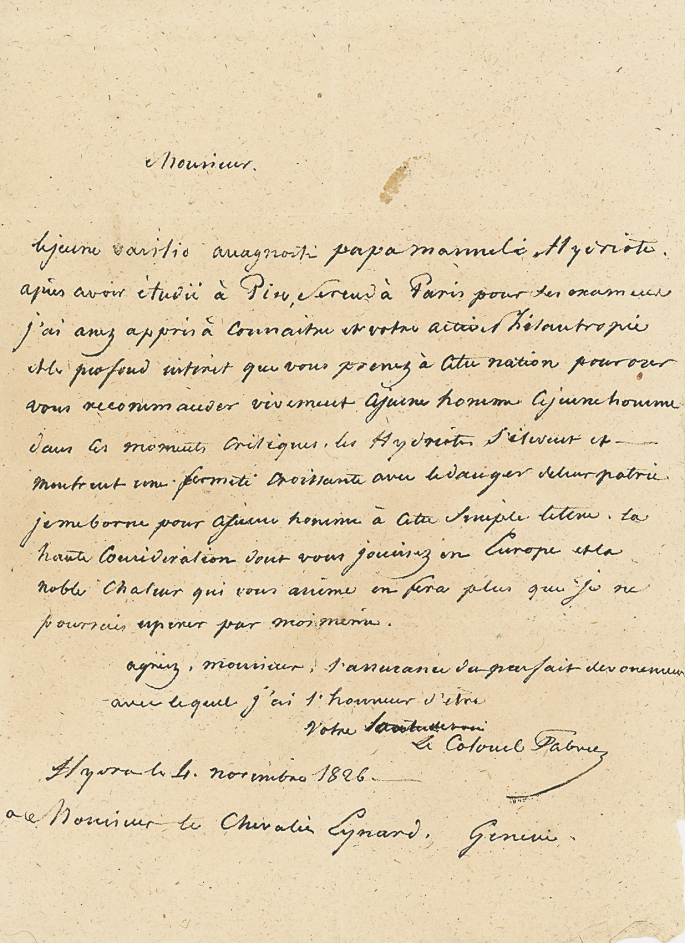 Monsieur.
le jeune vasilio anagnosti papa mannueli Hydriote.
après avoir étudié à Pise, se rend à Paris pour ses examens
j'ai assez appris à connaitre et votre active philantropie
et le profond intéret que vous prenez à cette nation pour oser
vous recommander vivement ce jeune homme ce jeune homme
dans ces moments critiques. les Hydriotes s'élèvent et
montrent une fermeté croissante avec le danger de leur patrie
je me borne pour ce jeune homme à cette simple lettre. la
haute Considération dont vous jouissez en Europe et la
noble chaleur qui vous anime en fera plus que je ne
pourrais espérer par moi même.
agréez, monsieur, l'assurance du parfait dévouement
avec lequel j'ai l'honneur d'être
Votre
Le Colonel Fabvier
Hydra le 4. novembre 1826.
a Monsieur le Chevalier Eynard. Genève.